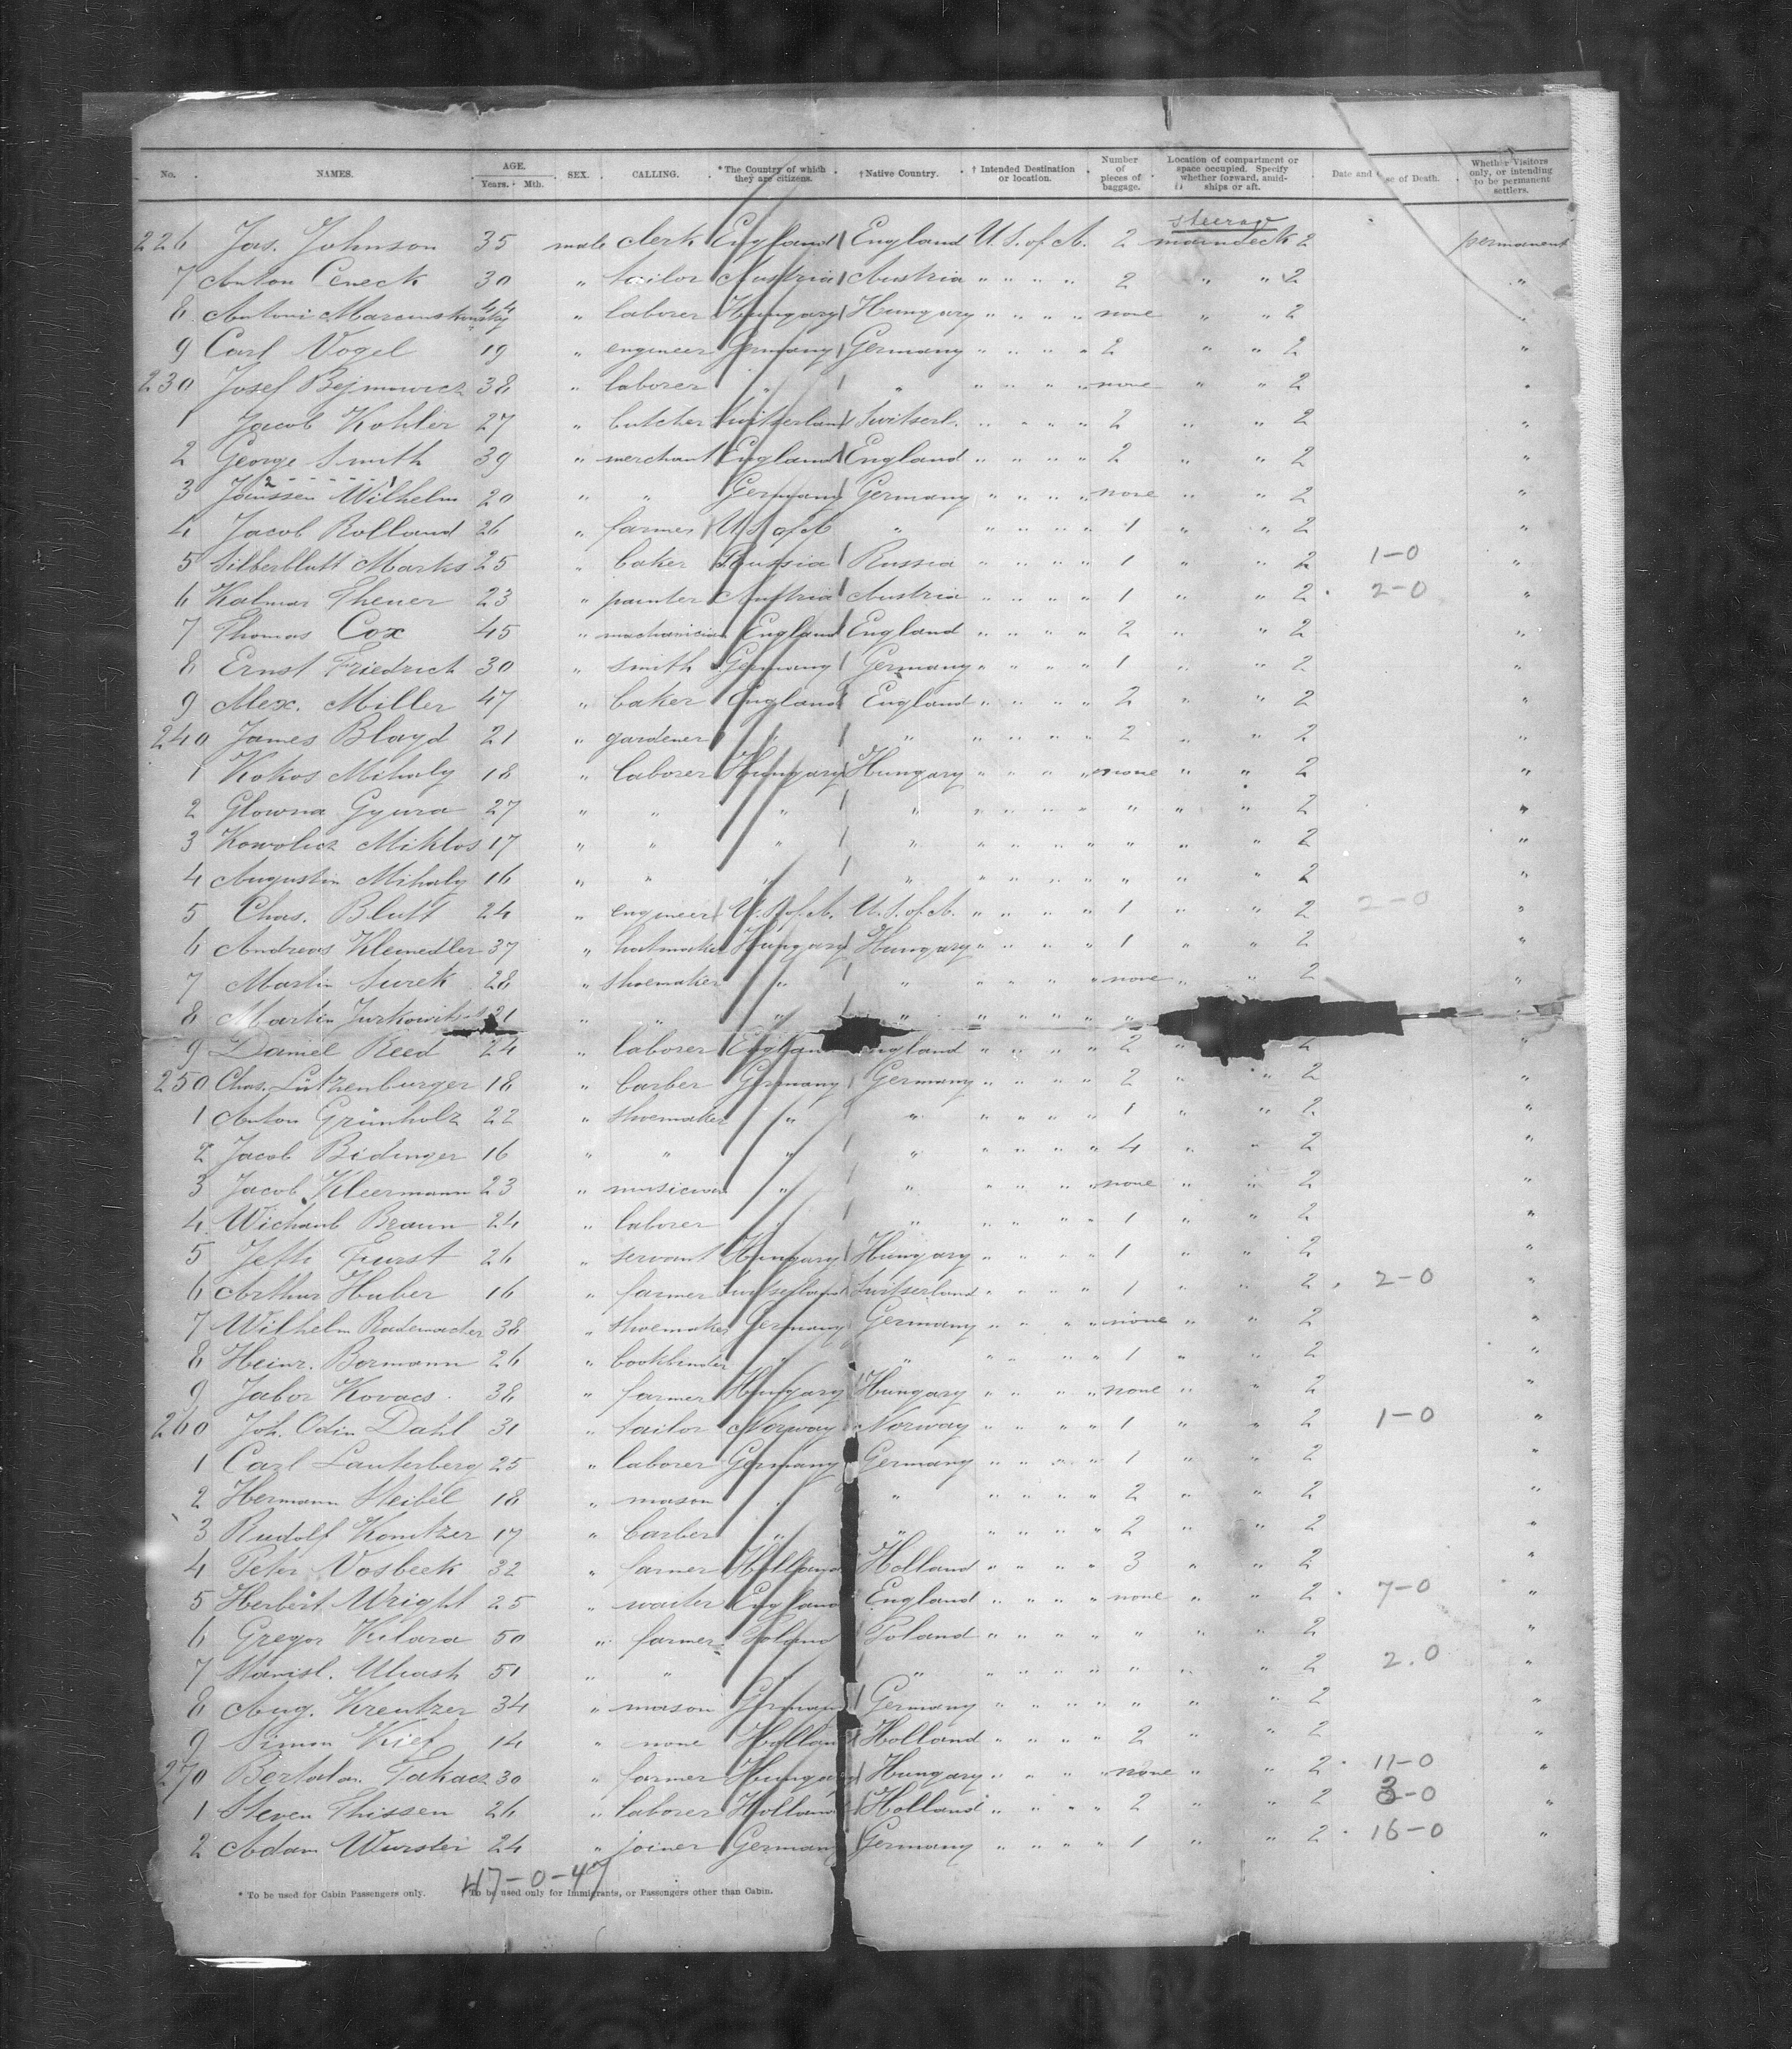 No. NAMES. AGE. Years. Mth. SEX. CALLING. *The Country of which they are citizens. †Native Country. †Intended Destination or location. Number of pieces of baggage. Location of compartment or space occupied. Specify whether forward, amidships or aft. Date and se of Death. Whether Visitors only, or intending to be permanent settlers.
steerage
226 Jas. Johnson 35 male clerk England England U.S. of A. 2 maindeck 2 permanent
7 Anton Ceneck 30 " tailor Austria Austria " " " " 2 " " 2 "
8 Antoni 44 " laborer Hungary Hungary " " " " none " " 2 "
9 Carl Vogel 19 " engineer Germany Germany " " " " 2 " " 2 "
230 Josef Bejmowicz 38 " laborer " " " " " " none " " 2 "
1 Jacob Kohler 27 " butcher Switserland Switserl. " " " " 2 " " 2 "
2 George Smith 39 " merchant England England " " " " 2 " " 2 "
3 Janssen Wilhelm 20 " " Germany Germany " " " " none " " 2 "
4 Jacob Rolland 26 " farmer U.S. of A " " " " " 1 " " 2 "
5 Silberblatt Marks 25 " baker Russia Russia " " " " 1 " " 2 1-0 "
6 Kalman Thener 23 " painter Austria Austria " " " " 1 " " 2 2-0 "
7 Thomas Cox 45 " machanician England England " " " " 2 " " 2 "
8 Ernst Friedrich 30 " smith Germany Germany " " " " 1 " " 2 "
9 Alex. Miller 47 " baker England England " " " " 2 " " 2 "
240 James Blayd 21 " gardener " " " " " " 2 " " 2 "
1 Kokos Mihaly 18 " laborer Hungary Hungary " " " " none " " 2 "
2 Glowna Gyura 27 " " " " " " " " " " " 2 "
3 Kowolicz Miklos 17 " " " " " " " " " " " 2 "
4 Augustin Mihaly 16 " " " " " " " " " " " 2 "
5 Chas. Blutt 24 " engineer U.S. of A. U.S. of A. " " " " 1 " " 2 2-0 "
6 Andreas Kleinedler 37 " hatmaker Hungary Hungary " " " " 1 " " 2 "
7 Martin Surek 28 " shoemaker " " " " " " none " " 2 "
8 Martin 21 " " " " " " " " "
9 Daniel Reed 24 " laborer England England " " " " 2 " 2 "
250 Chas. Lützenburger 18 " barber Germany Germany " " " " 2 " " 2 "
1 Anton Grünholz 22 " shoemaker " " " " " " 1 " " 2 "
2 Jacob Bidinger 16 " " " " " " " " 4 " " 2 "
3 Jacob Kleermann 23 " musician " " " " " " none " " 2 "
4 Braun 24 " laborer " " " " " " 1 " " 2 "
5 Jeth Furst 26 " servant Hungary Hungary " " " " 1 " " 2 "
6 Arthur Huber 16 " farmer Switserland Switserland " " " " 1 " " 2 2-0 "
7 Wilhelm Rademacher 38 " shoemaker Germany Germany " " " " none " " 2 "
8 Heinr. Bormann 26 " bookbinder " " " " " " 1 " " 2 "
9 Jabor Kovacs 38 " farmer Hungary Hungary " " " " none " " 2 "
260 Joh. Odin Dahl 31 " tailor Norway Norway " " " " 1 " " 2 1-0 "
1 Carl Lauterberg 25 " laborer Germany Germany " " " " 1 " " 2 "
2 Hermann Steibel 18 " mason " " " " " " 2 " " 2 "
3 Rudolf Konitzer 17 " barber " " " " " " 2 " " 2 "
4 Peter Vosbeek 32 " farmer Holland Holland " " " " 3 " " 2 "
5 Herbert Wright 25 " waiter England England " " " " none " " 2 7-0 "
6 Gregor Kilara 50 " farmer Poland Poland " " " " " " " 2 "
7 Stanisl. Uliash 51 " " " " " " " " " " " 2 2.0 "
8 Aug. Kreutzer 34 " mason Germany Germany " " " " " " " 2 "
9 Simon Kief 14 " none Holland Holland " " " " 2 " " 2 "
270 Bertalan Takacs 30 " farmer Hungary Hungary " " " " none " " 2 11-0 "
1 Steven Thissen 26 " laborer Holland Holland " " " " 2 " " 2 3-0 "
2 Adam Wurster 24 " joiner Germany Germany " " " " 1 " " 2 16-0 "
47-0-47
* To be used for Cabin Passengers only. To be used only for Immigrants, or Passengers other than Cabin.